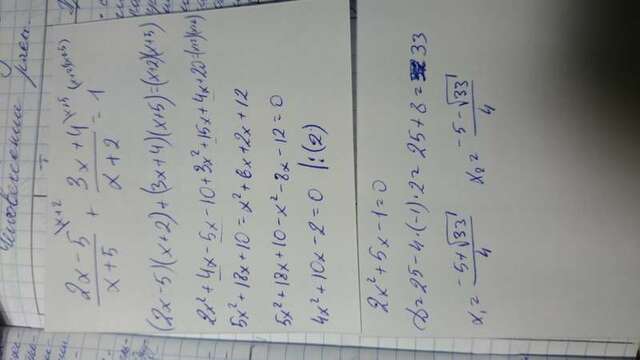 (2x-5)/(x+5) \x+2 + (3x+4)/(x+2) \x+5 = 1 \(x+2)(x+5)
(2x-5)(x+2)+(3x+4)(x+5)=(x+2)(x+5)
2x²+4x-5x-10+3x²+15x+4x+20=(x+2)(x+5)
5x²+18x+10=x²+6x+2x+12
5x²+18x+10-x²-8x-12=0
4x²+10x-2=0 |:(2)
2x²+5x-1=0
D=25-4·(-1)·2=25+8=33
x₁=(-5+√33)/4 x₂=(-5-√33)/4